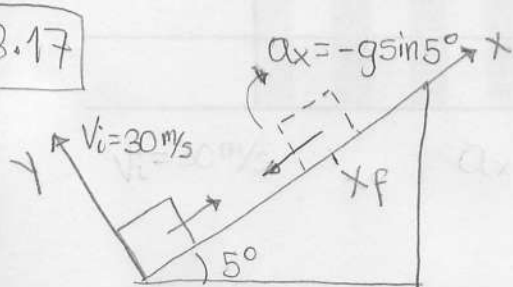 3.17
ax=-gsin5°
X
Vi=30 m/s
Y
Xf
5°